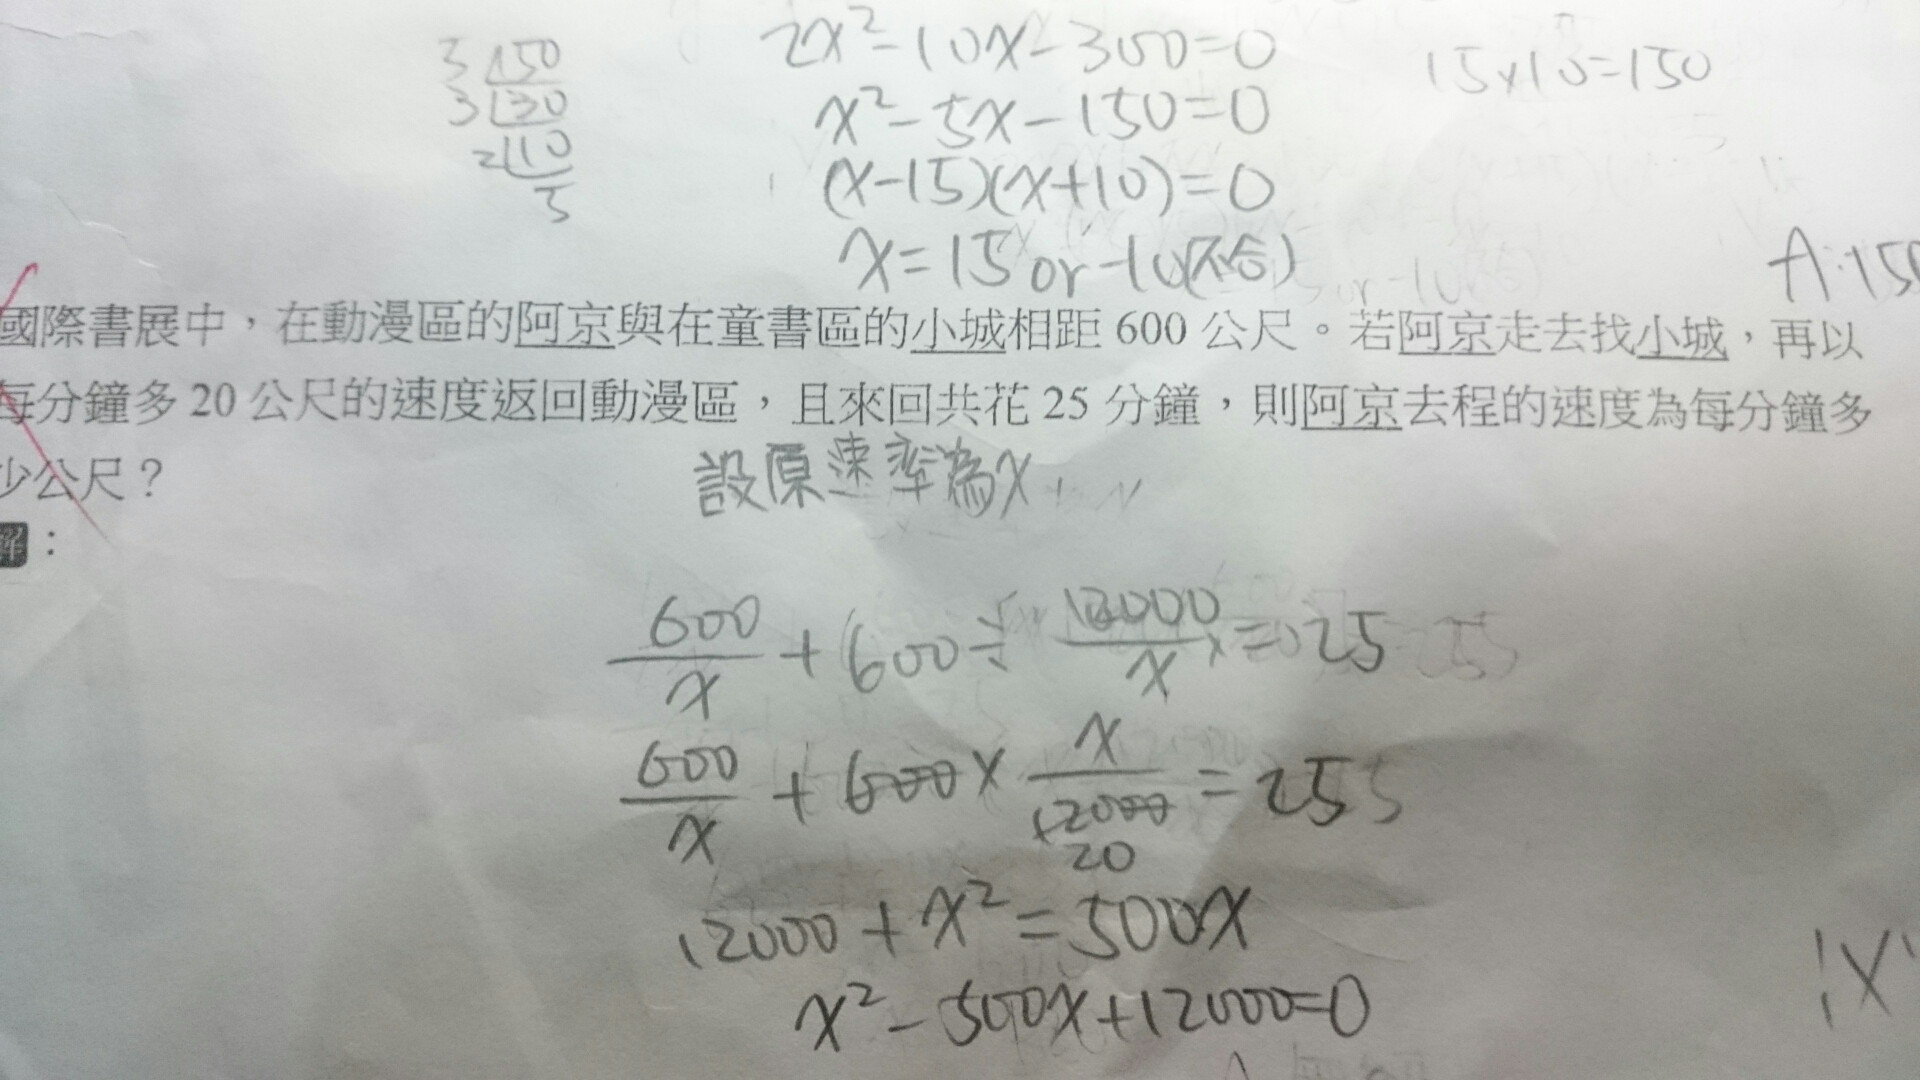 3 150
3 30
2 10
5
2x²-10x-300=0
x²-5x-150=0
(x-15)(x+10)=0
x=15 or -10(不合)
15×10=150
A:150
國際書展中，在動漫區的阿京與在童書區的小城相距 600 公尺。若阿京走去找小城，再以
每分鐘多 20 公尺的速度返回動漫區，且來回共花 25 分鐘，則阿京去程的速度為每分鐘多
少公尺？
設原速率為x
解：
600/x + 600 ÷ 12000/x = 25
600/x + 600 × x/12000 = 25
20
12000+x²=500x
x²-500x+12000=0